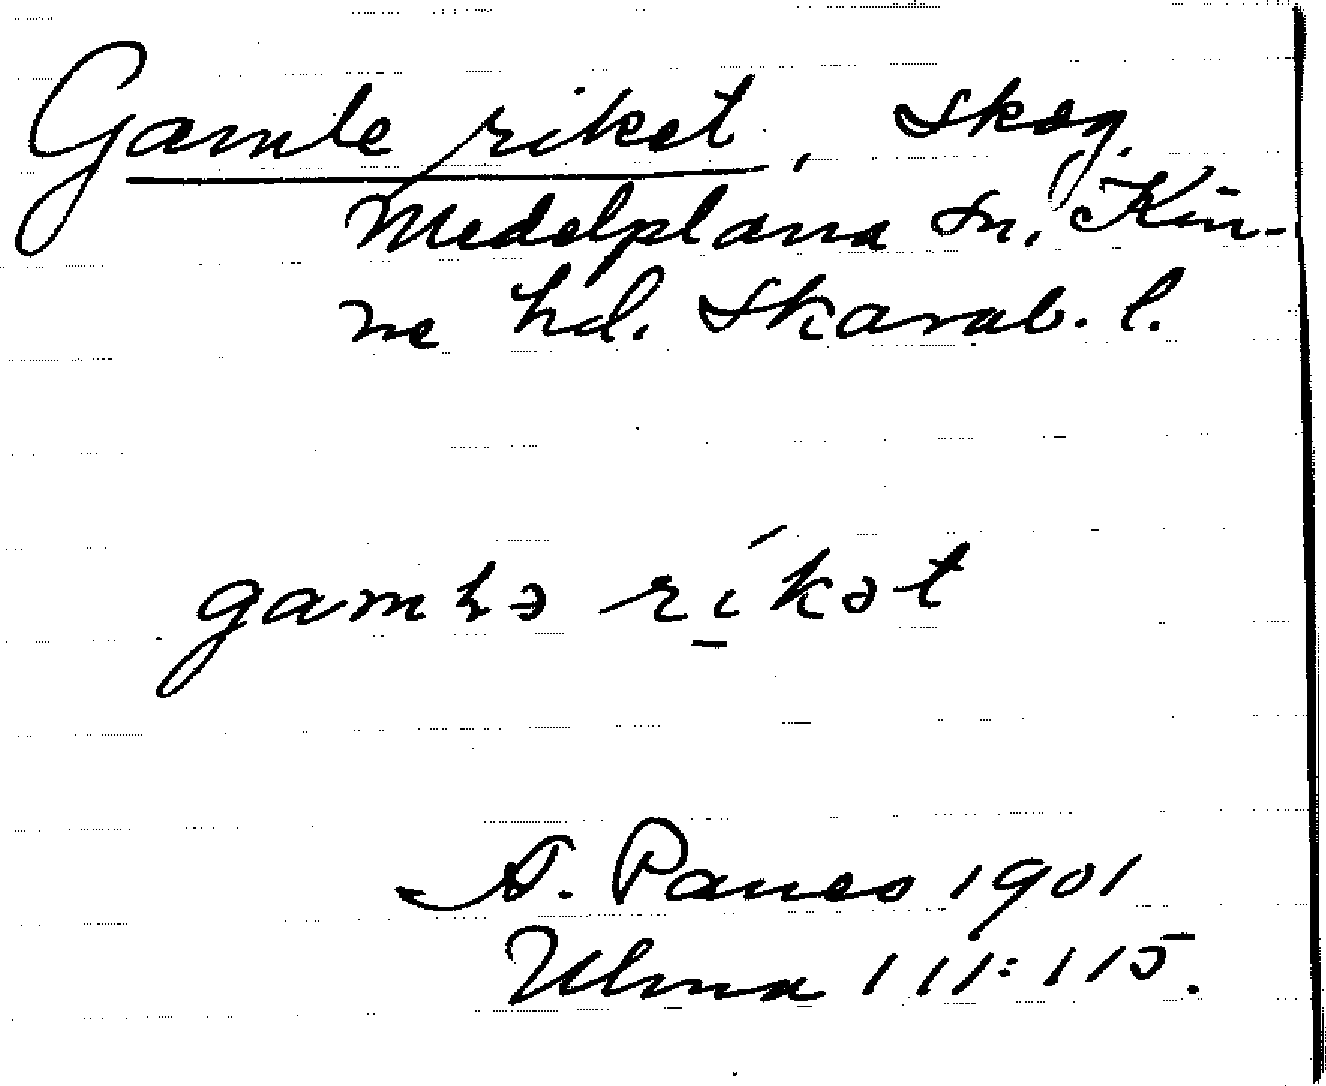 Gamle riket, skog,
Medelplana sn, Kin-
ne hd. Skarab. l.
gamlə rí̱kət
A. Paues 1901
Ulma 111:115.